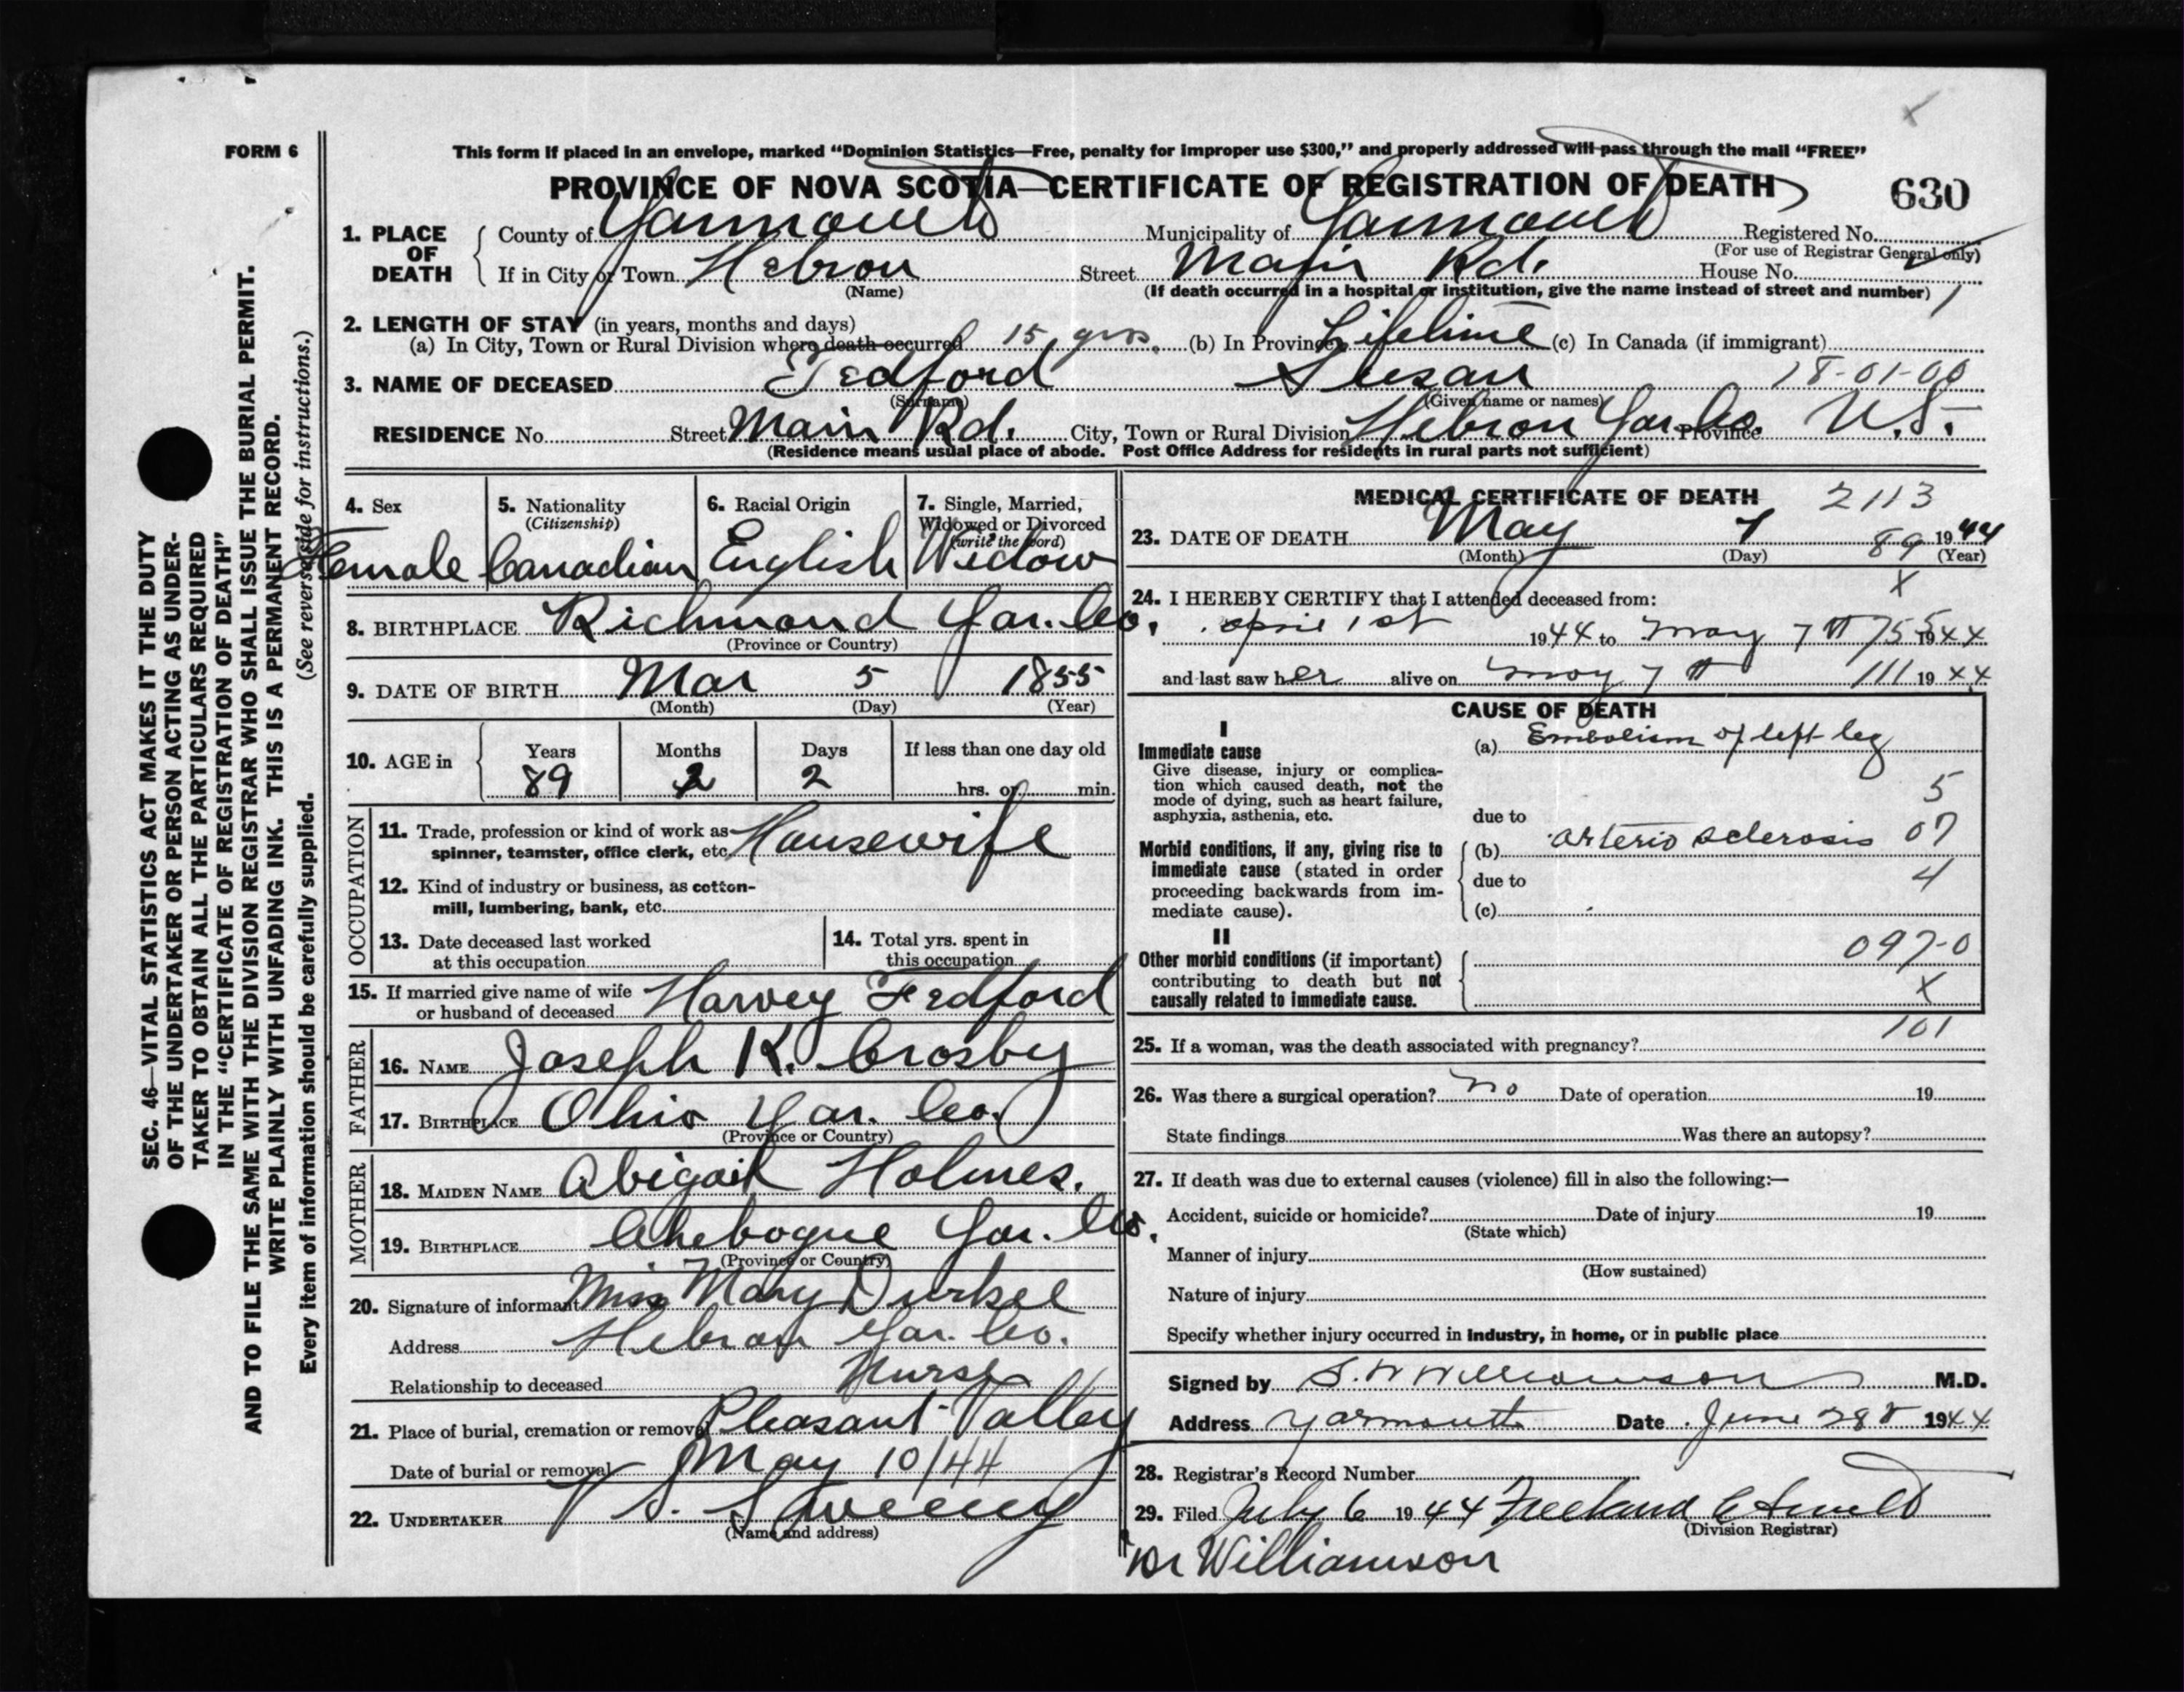 FORM 6
This form if placed in an envelope, marked “Dominion Statistics—Free, penalty for improper use $300,” and properly addressed will pass through the mail “FREE”
PROVINCE OF NOVA SCOTIA—CERTIFICATE OF REGISTRATION OF DEATH
630
1. PLACE OF DEATH
County of Yarmouth Municipality of Yarmouth Registered No.
(For use of Registrar General only)
If in City or Town Hebron Street Main Rd. House No.
(Name)
(If death occurred in a hospital or institution, give the name instead of street and number) 1
2. LENGTH OF STAY (in years, months and days)
(a) In City, Town or Rural Division where death occurred 15 yrs. (b) In Province Lifetime (c) In Canada (if immigrant)
3. NAME OF DECEASED Tedford Susan 18-01-00
(Surname) (Given name or names)
RESIDENCE No. Street Main Rd. City, Town or Rural Division Hebron Yar. Co. Province N.S.
(Residence means usual place of abode. Post Office Address for residents in rural parts not sufficient)
4. Sex
Female
5. Nationality
(Citizenship)
Canadian
6. Racial Origin
English
7. Single, Married,
Widowed or Divorced
(write the word)
Widow
8. BIRTHPLACE Richmond Yar. Co.
(Province or Country)
9. DATE OF BIRTH Mar 5 1855
(Month) (Day) (Year)
10. AGE in
Years Months Days If less than one day old
89 2 2 hrs. or min.
OCCUPATION
11. Trade, profession or kind of work as
spinner, teamster, office clerk, etc. Housewife
12. Kind of industry or business, as cotton-
mill, lumbering, bank, etc.
13. Date deceased last worked
at this occupation
14. Total yrs. spent in
this occupation
15. If married give name of wife
or husband of deceased Harvey Tedford
FATHER
16. NAME Joseph K. Crosby
17. BIRTHPLACE Ohio Yar. Co.
(Province or Country)
MOTHER
18. MAIDEN NAME Abigail Holmes.
19. BIRTHPLACE Chebogue Yar. Co.
(Province or Country)
20. Signature of informant Miss Mary Durkee
Address Hebron Yar. Co.
Relationship to deceased Nurse
21. Place of burial, cremation or removal Pleasant Valley
Date of burial or removal May 10/44
22. UNDERTAKER V. S. Sweeny
(Name and address)
MEDICAL CERTIFICATE OF DEATH 2113
23. DATE OF DEATH May 7 1944
(Month) (Day) 89 (Year)
X
24. I HEREBY CERTIFY that I attended deceased from:
April 1st 1944 to May 7th 755 1944
and last saw her alive on May 7th 111 1944
CAUSE OF DEATH
I
Immediate cause
Give disease, injury or complica-
tion which caused death, not the
mode of dying, such as heart failure,
asphyxia, asthenia, etc.
(a) Embolism of left leg
5
due to
Morbid conditions, if any, giving rise to
immediate cause (stated in order
proceeding backwards from im-
mediate cause).
(b) Arterio sclerosis 07
due to 4
(c)
II
Other morbid conditions (if important)
contributing to death but not
causally related to immediate cause.
097-0
X
101
25. If a woman, was the death associated with pregnancy?
26. Was there a surgical operation? no Date of operation 19
State findings Was there an autopsy?
27. If death was due to external causes (violence) fill in also the following:—
Accident, suicide or homicide? Date of injury 19
(State which)
Manner of injury
(How sustained)
Nature of injury
Specify whether injury occurred in industry, in home, or in public place
Signed by S. W Williamson M.D.
Address Yarmouth Date June 28 1944
28. Registrar's Record Number
29. Filed July 6 1944 Freeland
(Division Registrar)
Dr Williamson
SEC. 46—VITAL STATISTICS ACT MAKES IT THE DUTY
OF THE UNDERTAKER OR PERSON ACTING AS UNDER-
TAKER TO OBTAIN ALL THE PARTICULARS REQUIRED
IN THE “CERTIFICATE OF REGISTRATION OF DEATH”
AND TO FILE THE SAME WITH THE DIVISION REGISTRAR WHO SHALL ISSUE THE BURIAL PERMIT.
WRITE PLAINLY WITH UNFADING INK. THIS IS A PERMANENT RECORD.
Every item of information should be carefully supplied. (See reverse side for instructions.)